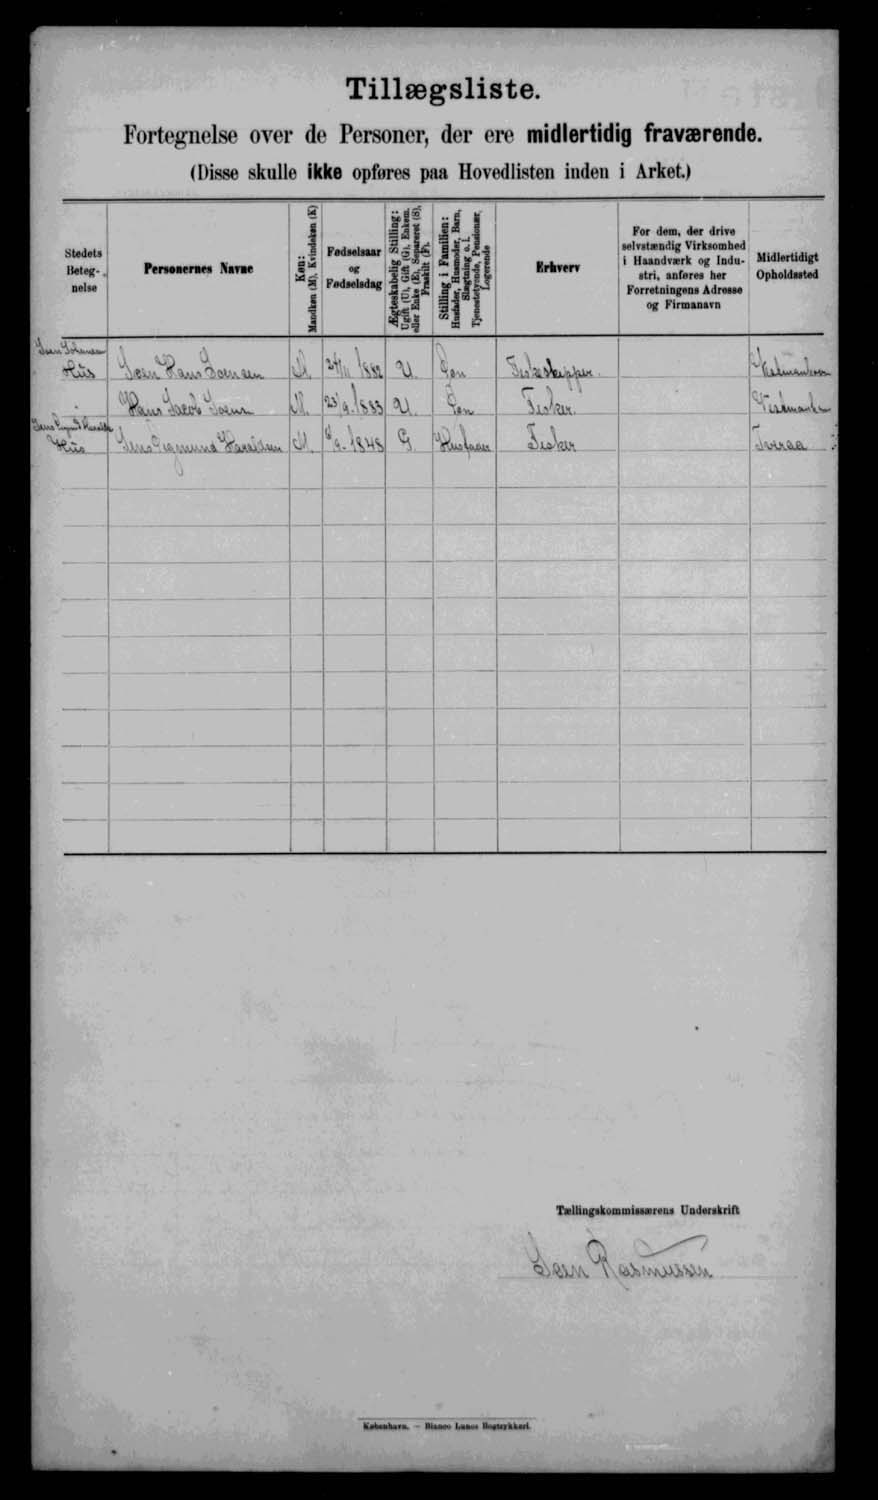 Tillægsliste.
Fortegnelse over de Personer, der ere midlertidig fraværende.
(Disse skulle ikke opføres paa Hovedlisten inden i Arket.)
Stedets Beteg-nelse
Personernes Navne
Køn:
Mandkøn (M), Kvindekøn (K)
Fødselsaar
og
Fødselsdag
Ægteskabelig Stilling:
Ugift (U), Gift (G), Enkem.
eller Enke (E), Separeret (S),
Fraskilt (F).
Stilling i Familien:
Husfader, Husmoder, Barn,
Slægtning o. l.
Tjenestetyende, Pensionær,
Logerende
Erhverv
For dem, der drive
selvstændig Virksomhed
i Haandværk og Indu-
stri, anføres her
Forretningens Adresse
og Firmanavn
Midlertidigt
Opholdssted
Hus Hans M. 24/11 1882 U. Søn Fiskeskipper.
Hans Jacob M. 23/9. 1883 U. Søn Fisker.
Hus Sigmund M. /9. 1848 G. Husfader Fisker
Tællingskommissærens Underskrift
Rasmussen
København. — Bianco Lunos Bogtrykkeri.